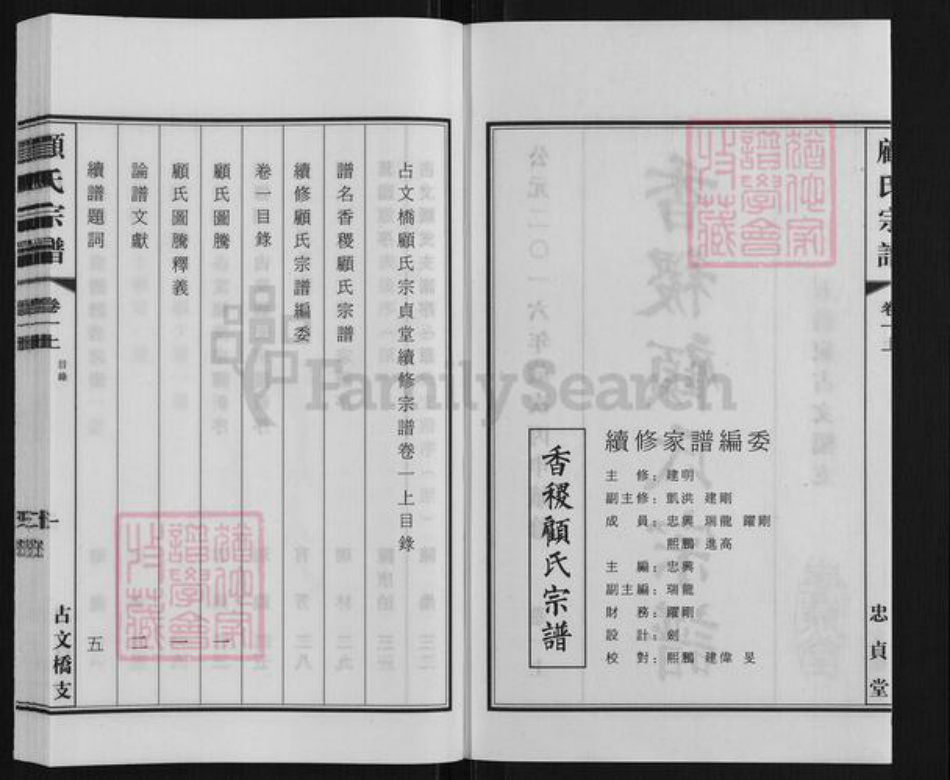 顧氏宗譜
卷一上
忠貞堂
續修家譜編委
主　修：建明
副主修：凱洪 建剛
成　員：忠興 瑞龍 躍剛
熙鵬 進高
主　編：忠興
副主編：瑞龍
財　務：躍剛
設　計：劍
校　對：熙鵬 建偉 旻
香稷顧氏宗譜
占文橋顧氏宗貞堂續修宗譜卷一上目錄
譜名香稷顧氏宗譜
續修顧氏宗譜編委
卷一目錄
顧氏圖騰 一
顧氏圖騰釋義 一
論譜文獻 二
續譜題詞 五
顧氏宗譜
卷一上
目錄
占文橋支
FamilySearch